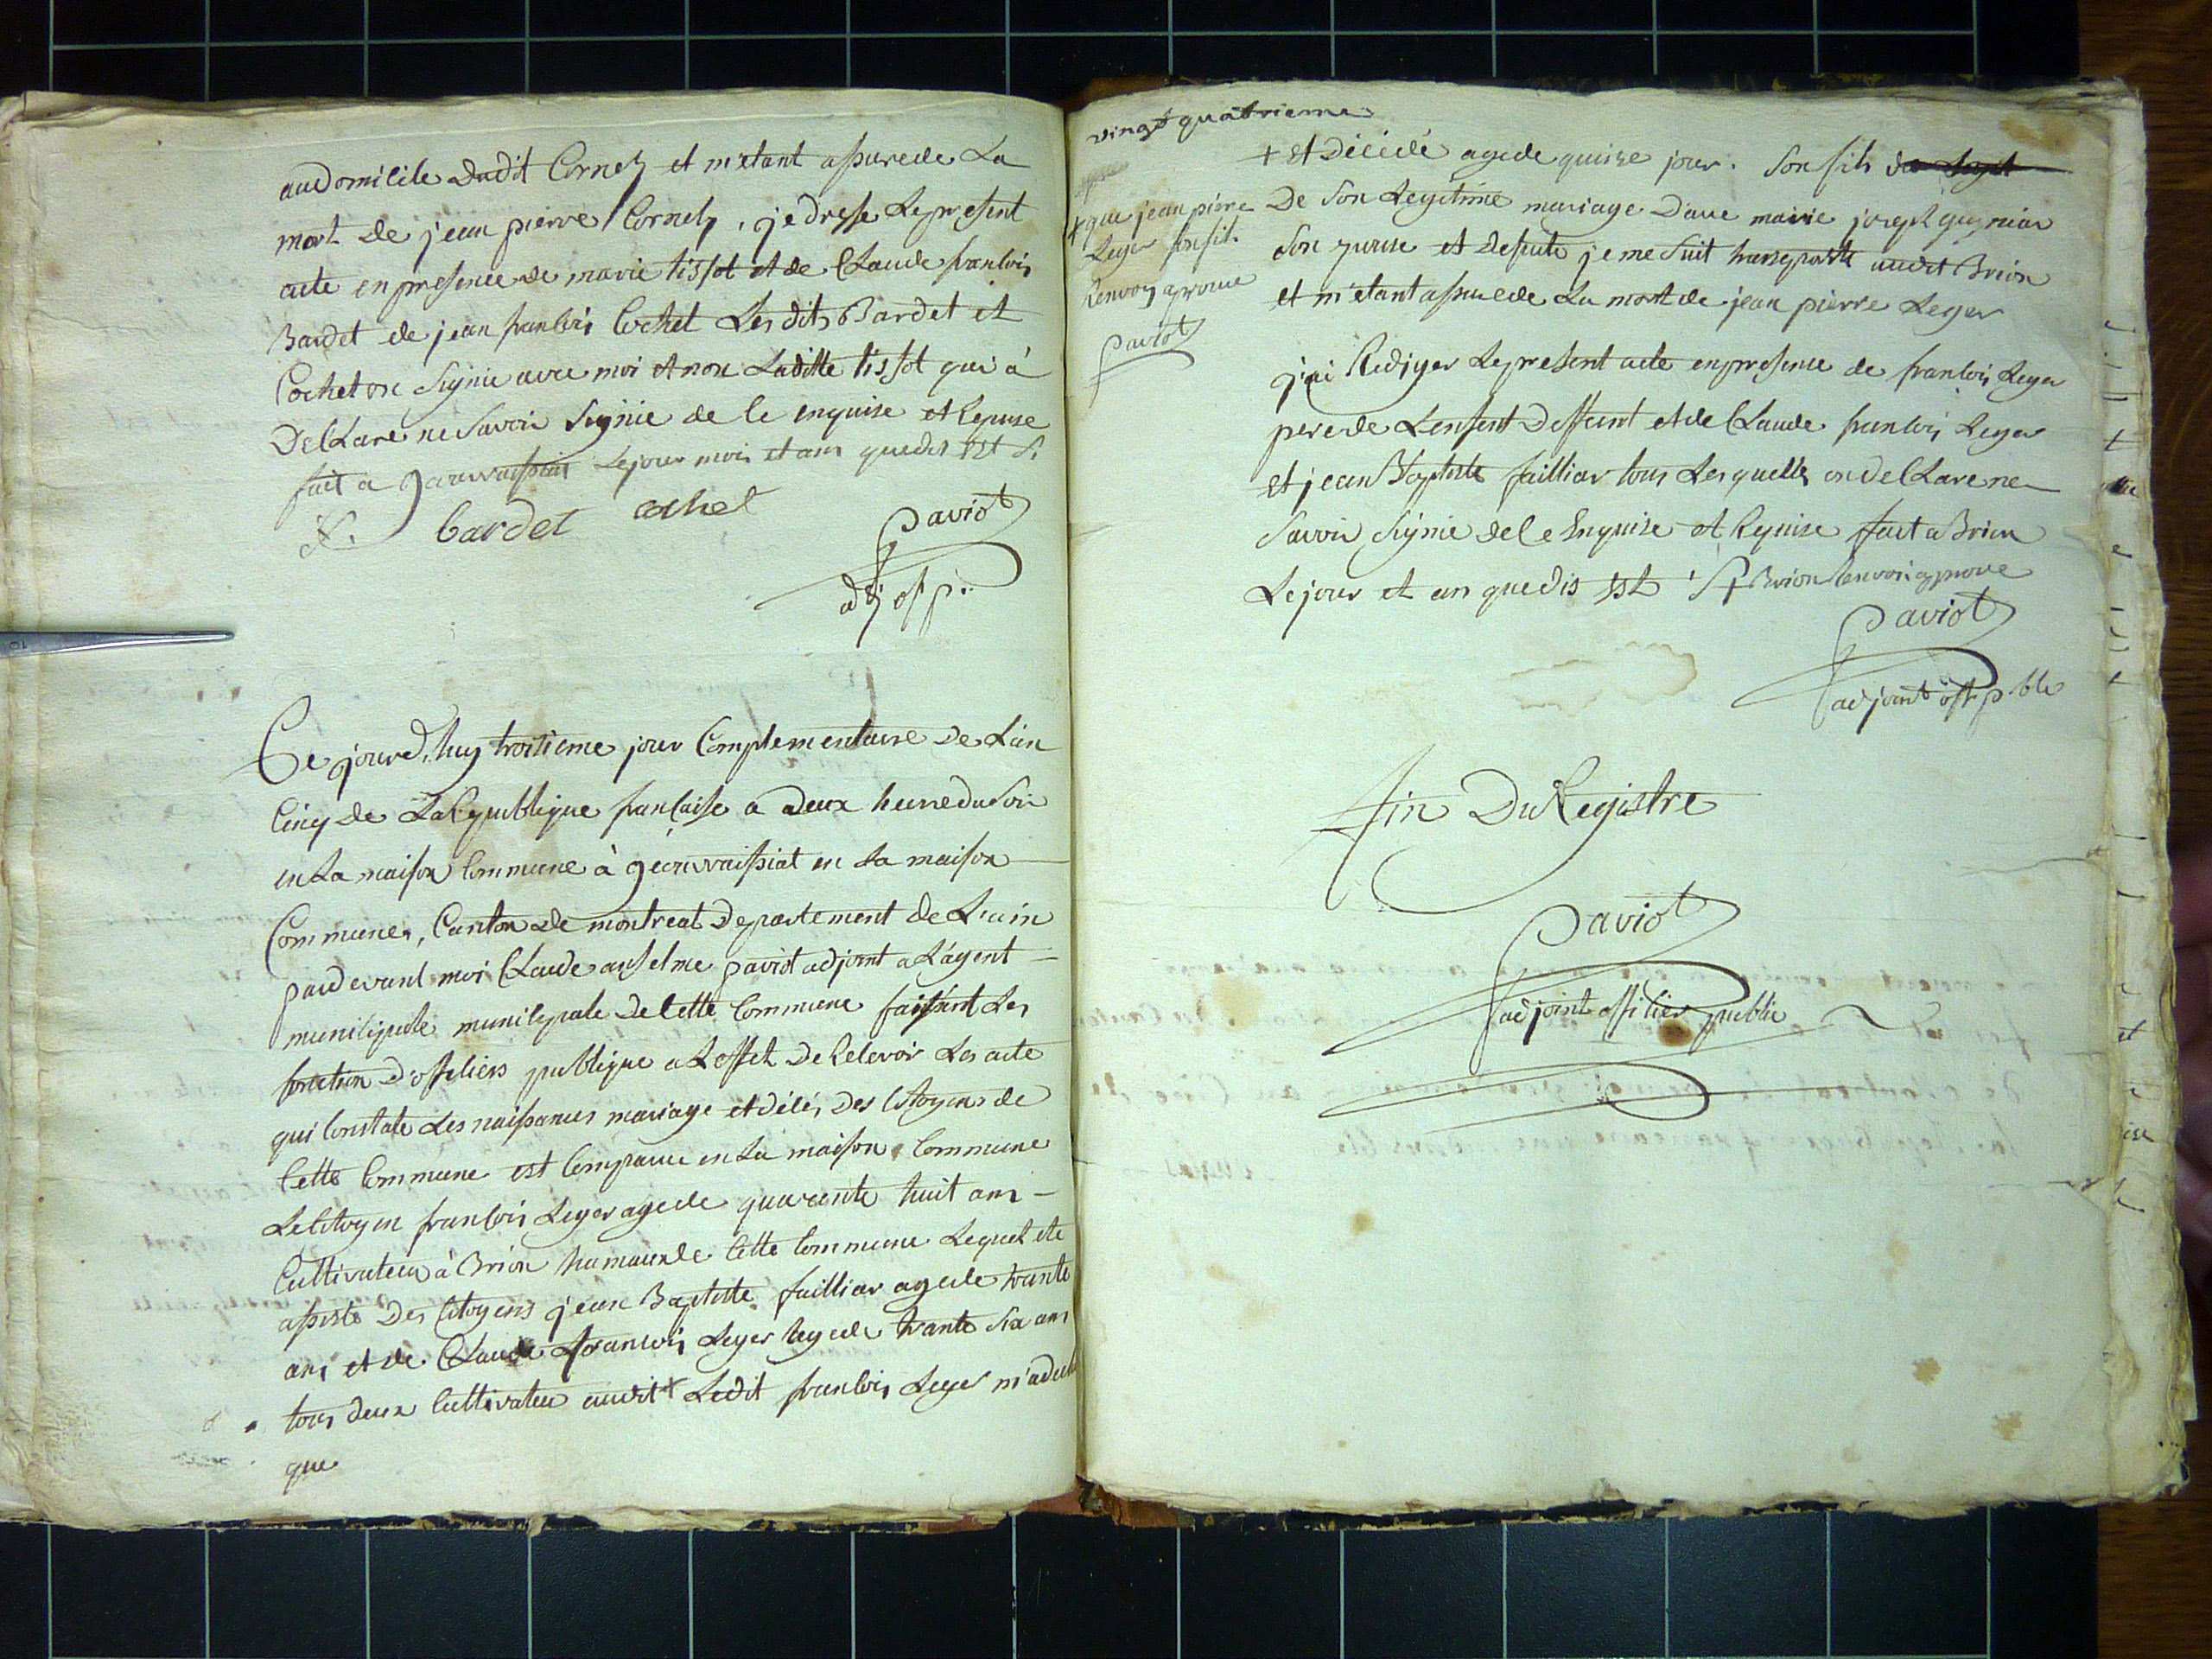 audomicile dudit Cornet et m'etant assurede La
mort de jean pierre Cornet, je dresse Le present
acte en presence de marie tissot et de Claude francois
Bardet de jean francois Cochet Les dits Bardet et
Cochet on Signie avec moi et non Laditte tissot qui à
De Clare ne Savoir Signie de Ce enquise et Requise
fait a gearvaissiat Le jour mois et ans que dis Est Si
bardet cochet
Paviot
adj of p.
Ce jourd'huy troisieme jour Complementaire De L'an
Cinq de La Republique francaise a deux heure du Soir
en La maison Commune à gearvaissiat en La maison
Commune, Canton de montreal Departement de L'ain
pardevant moi Claude anselme paviot adjoint a L'agent
municipale municipale de Cette Commune faissant Les
fonction D'officiers publique a L'effet De Recevoir Les acte
qui Constate Les naissances mariage et décés Des Citoyens de
Cette Commune est Comparu en La maison Commune
Le Citoyen francois Leger agede quarante huit ans
Cultivateur à Brion hamaux de Cette Commune Lequel ete
assiste Des Citoyens jean Baptiste failliar agede trante
ans et de Claude francois Leger agede trante Six ans
tous deux Cultivateu audit + Ledit francois Leger m'a declar
que
vingt quatrieme
+ et Décédé agede quinze jour. Son fils
+ que jean pierre
Leger son fils
Renvoy aprouve
Paviot
De Son Legitime mariage D'avec marie joseph
Son epouse et desuite je me Suit transporte audit Brion
et m'etant assurede La mort de jean pierre Leger
j'ai Rediger Le present acte en presence de francois Leger
pere de L'enfent Deffeunt et de Claude francois Leger
et jean Baptiste failliar tous Lesquells on de Clare ne
Savoir Signie de Ce Enquise et Requise fait a Brion
Le jour et an que dis Est + Brion Renvoi aprove
Paviot
adjoint off pble
Fin Du Registre
Paviot
adjoint officier public